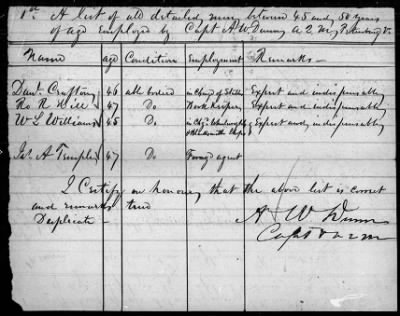 1st. A list of all detailed men between 45 and 50 years
of age employed by Capt A. W. Dunn A. Q. M. Petersburg Va
Name age Condition Employment Remarks
Danl. Crafton 46 able bodied in Charge of Stable Expert and indispensable
R. R. Hill 47 Do Book Keeper Expert and indispensable
W L Williams 45 Do in Chg. Wheelwright Expert and indispensable
& Blacksmith Shops
Js. A Temple 47 Do Forage agent
I Certify on honour that the above list is correct
and remarks true
Duplicate A W Dunn
Capt & A Q M